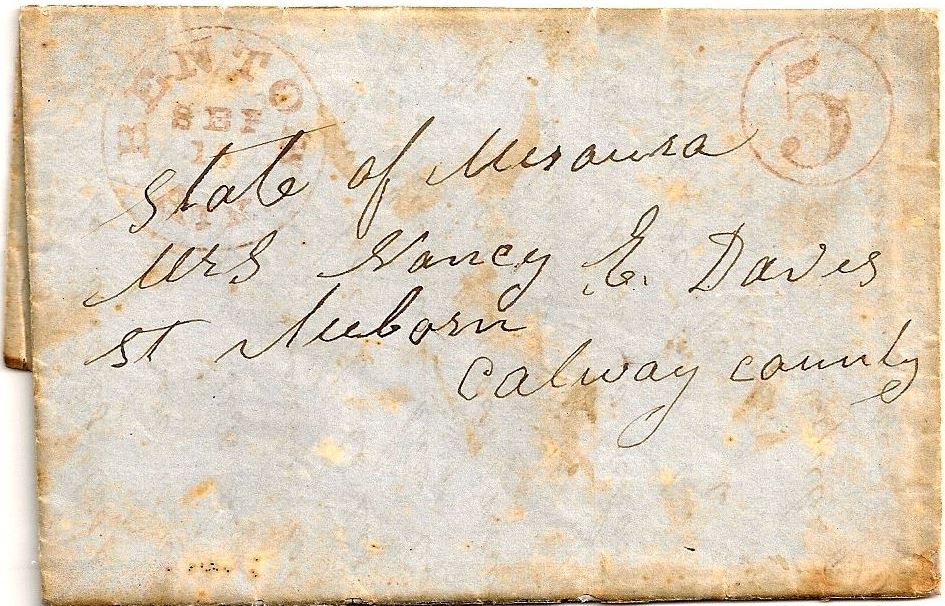 BENTON
SEP
5
State of Mesoura
Mrs Nancy E. Davis
St Auborn
Calway county